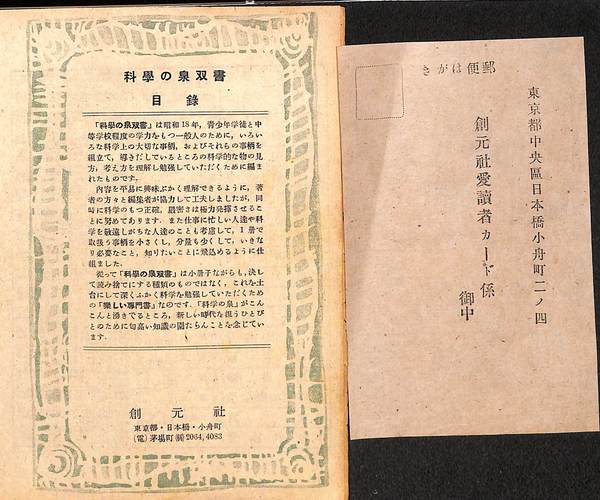 科學の泉双書
目錄
「科學の泉双書」は昭和18年，青少年学徒と中
等学校程度の学力をもつ一般人のために，いろい
ろな科学上の大切な事柄，およびそれらの事柄を
組立て，導きだしているところの科学的な物の見
方，考え方を理解し勉強していただくために編ま
れたものです。
内容を平易に興味ぶかく理解できるように，著
者の方々と編集者が協力して工夫しましたが，同
時に科学のもつ正確，嚴密さは極力発揮させるこ
とに努めてあります．また仕事に忙しい人達や科
学を敬遠しがちな人達のことも考慮して，1册で
取扱う事柄を小さくし，分量も少くして，いきな
り必要なこと，知りたいことに飛込めるように仕
組ました．
從って「科學の泉双書」は小册子ながらも，決し
て読み捨てにする種類のものではなく，これを土
台にして深くふかく科学を勉強していただくため
の「樂しい專門書」なのです．「科学の泉」がこん
こんと湧きでるところ，新しい時代を担うひとび
とのために匂高い知識の園たらんことを念じてい
ます．
創元社
東京都・日本橋・小舟町
(電) 茅場町 ㈹ 2064,4083
郵便はがき
東京都中央區日本橋小舟町二ノ四
創元社愛讀者カード係
御中